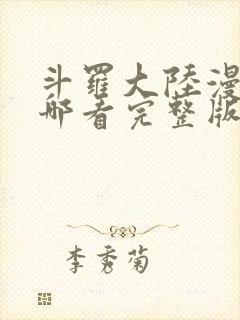 斗羅大陸漫
哪看完整版
李秀菊